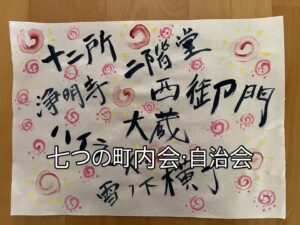 十二所
二階堂
浄明寺
西御門
大蔵
七つの町内会・自治会
雪ノ下